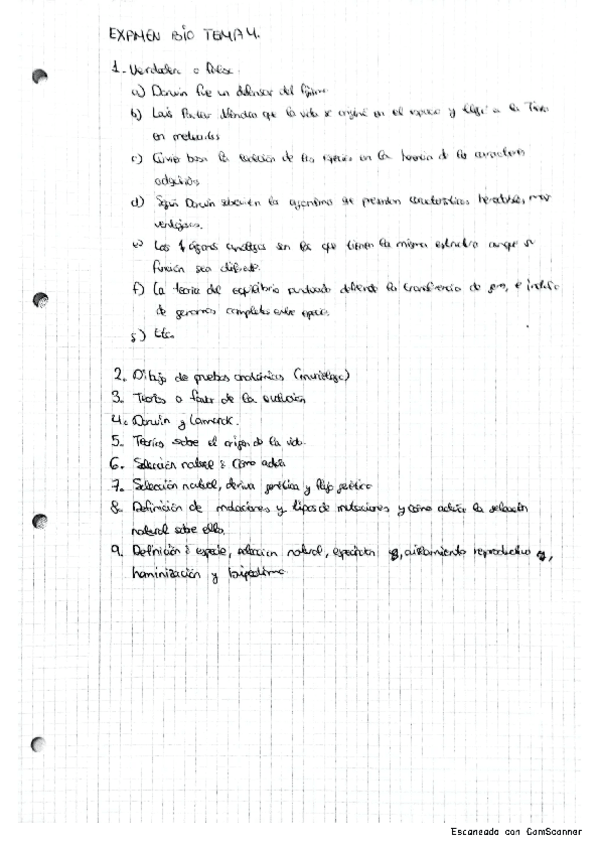 EXAMEN BIO TEMA 4.
1. Verdadero o falso.
a) Darwin fue un defensor del fijismo
b) Luis Pasteur defendía que la vida se originó en el espacio y llegó a la Tierra
en meteoritos
c) Cuvier basa la evolución de las especies en la herencia de los caracteres
adquiridos
d) Según Darwin sobreviven los organismos que presenten características heredables, más
ventajosas.
e) Los órganos análogos son los que tienen la misma estructura aunque su
función sea diferente.
f) La teoría del equilibrio puntuado defiende la transferencia de genes, e incluso
de genomas completos entre especies.
g) Etc.
2. Dibujo de pruebas anatómicas (murciélago)
3. Teorías a favor de la evolución
4. Darwin y Lamarck.
5. Teorías sobre el origen de la vida.
6. Selección natural: Cómo actúa
7. Selección natural, deriva genética y flujo genético
8. Definición de mutaciones y tipos de mutaciones y cómo actúa la selección
natural sobre ellas.
9. Definición: especie, selección natural, especiación, aislamiento reproductivo,
hominización y bipedismo
Escaneado con CamScanner